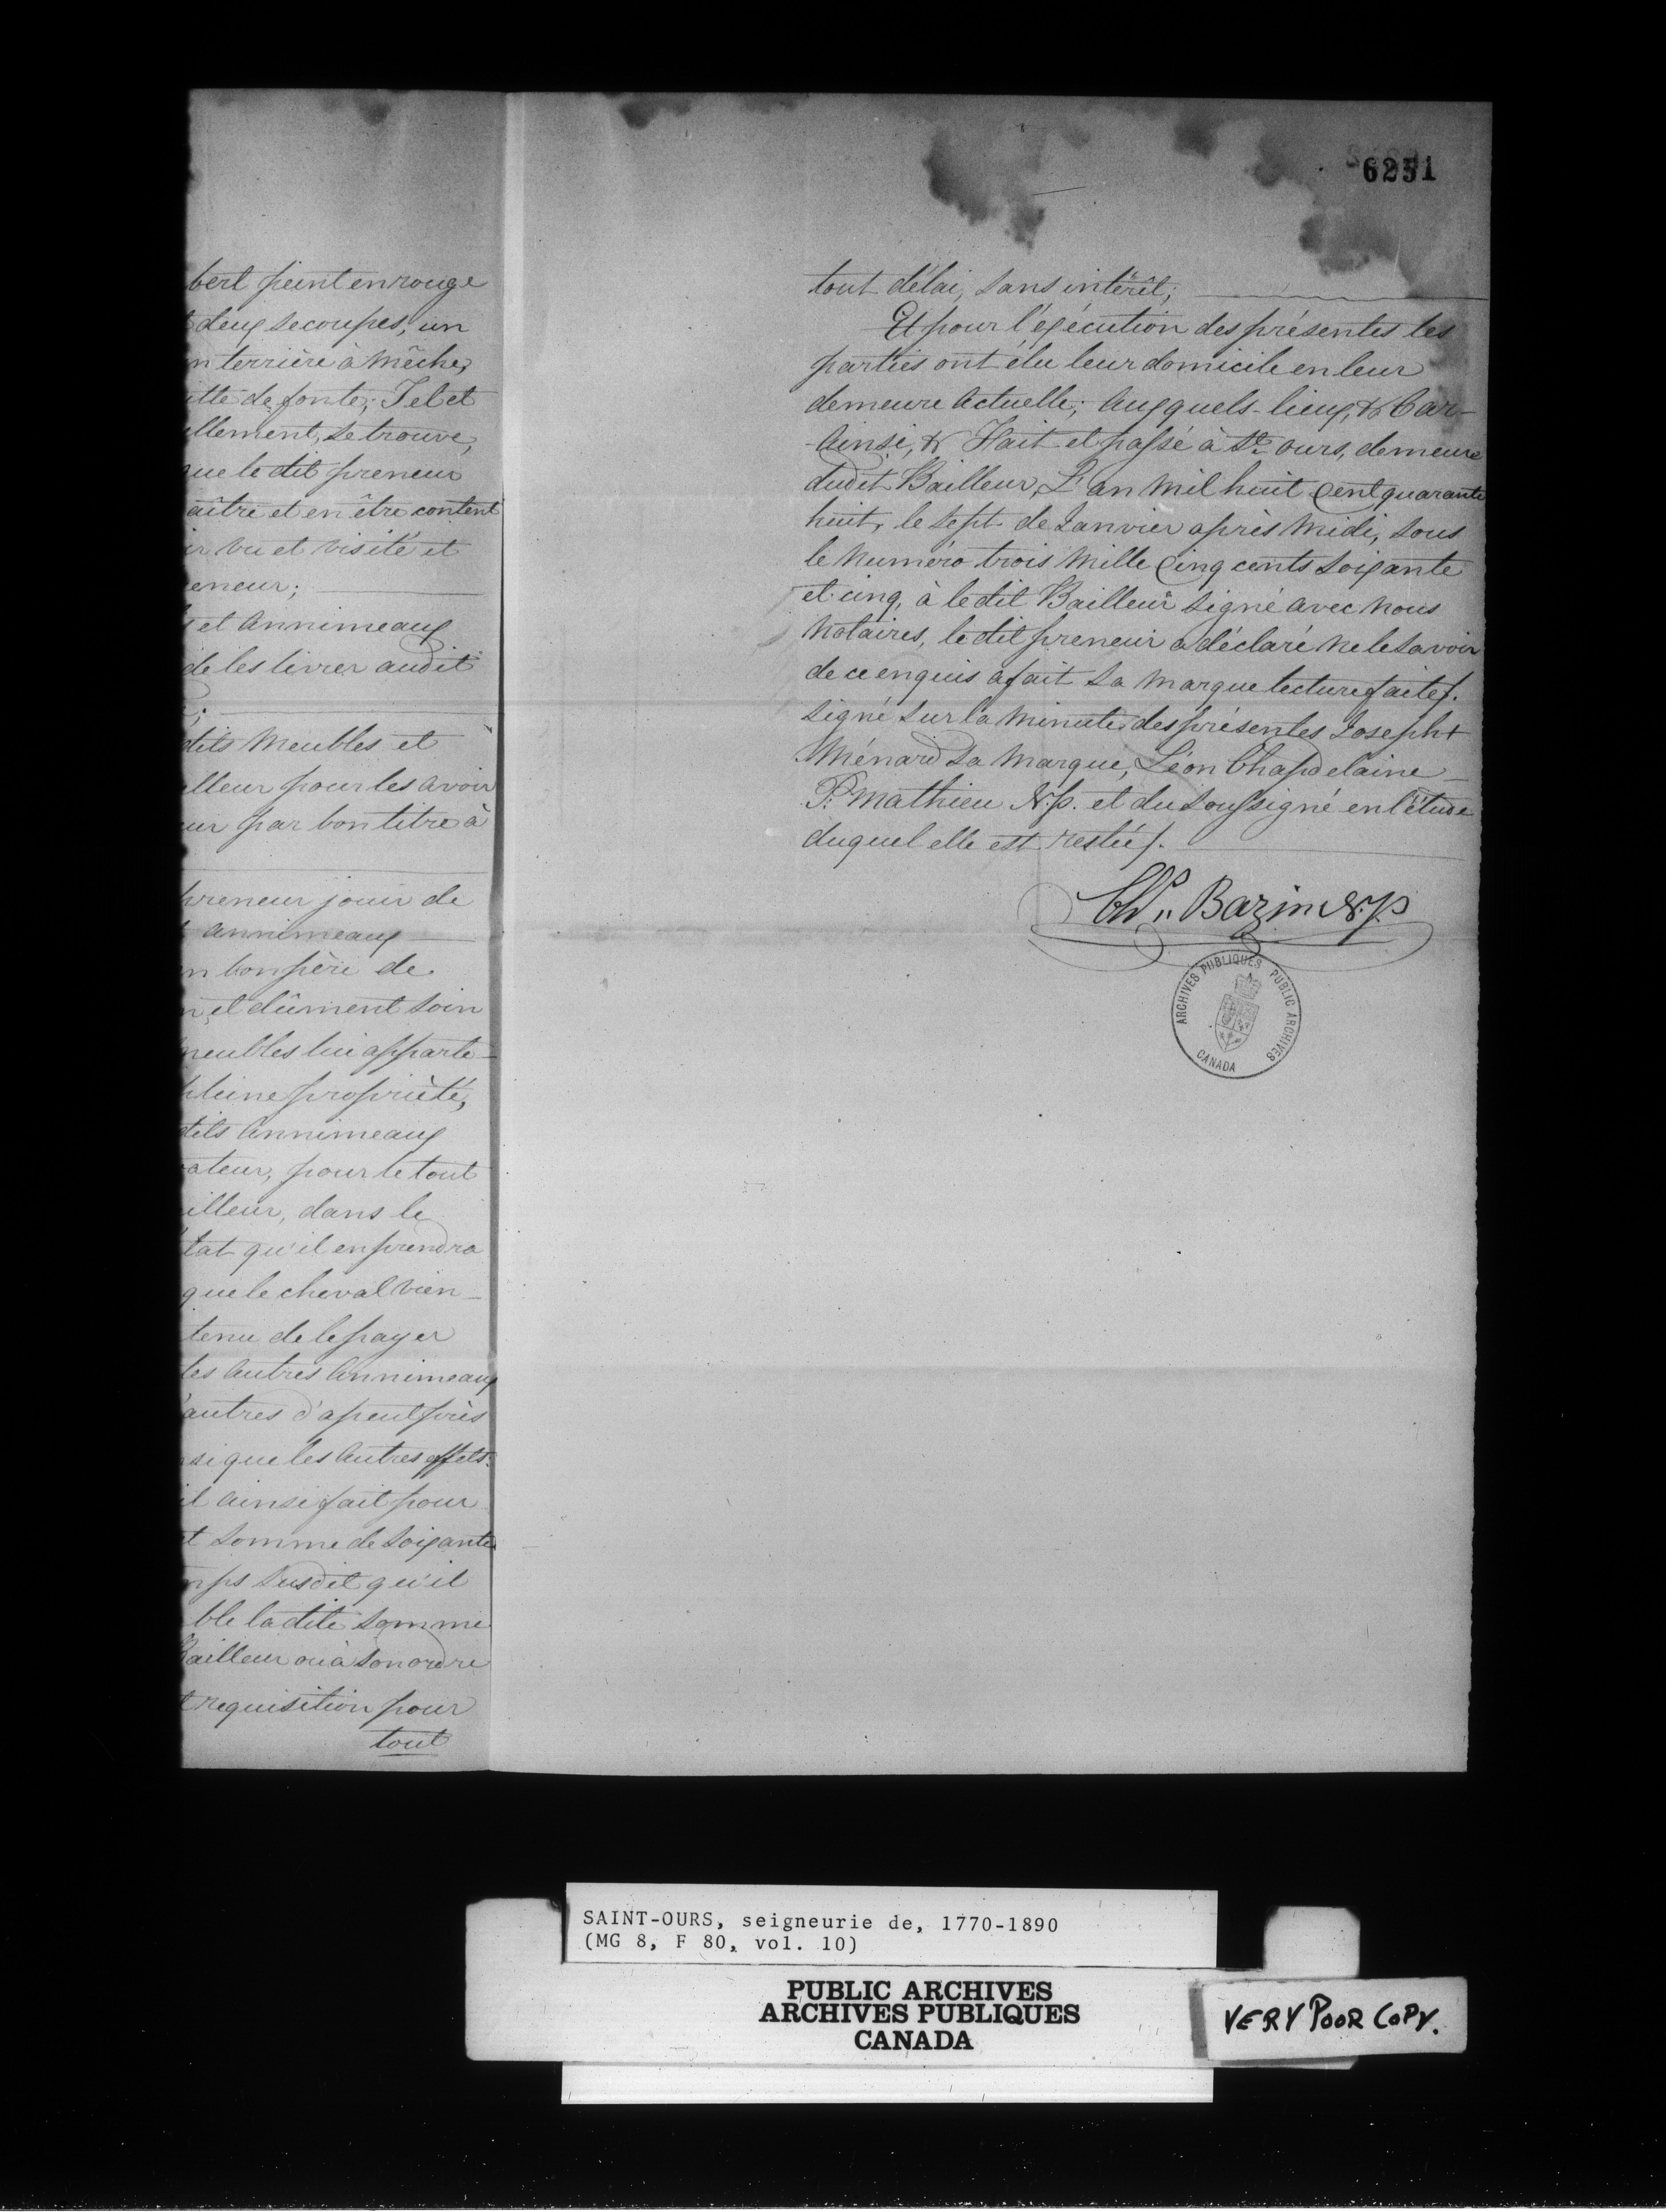 6251
bert peint en rouge
deux secoupes, un
n terrière à mêche,
itte de fonte; Tel et
llement, se trouve,
que le dit preneur
aître et en être content
ir vu et visité et
eneur;
et annimeaux
de les livrer audit
dits meubles et
lleur pour les avoir
ur par bon titre à
preneur jouir de
annimeaux
n bon père de
n et dûment soin
meubles lui apparte-
pleine propriété,
dits annimeaux
ateur, pour le tout
illeur, dans le
tat qu'il en prendra
que le cheval vien-
tenu de le payer
les autres annimeaux
autres d'apeutprès
si que les autres effets:
il ainsi fait pour
t somme de soixante
mps susdit qu'il
ble la dite somme
Bailleur ou à son ordre
t requisition pour
tout
tout délai, sans intérêt;
Et pour l'exécution des présentes les
parties ont élu leur domicile en leur
demeure actuelle; auxquels-lieux, & Car-
-ainsi, & Fait et passé à St. ours, demeure
dudit Bailleur, L'an mil huit cent quarante
huit, le sept de Janvier après midi, sous
le numéro trois mille cinq cents soixante
et cinq, à le dit Bailleur signé avec nous
notaires, le dit preneur a déclaré ne le savoir
de ce enquis a fait sa marque lecture faite/.
signé sur la minute des présentes Joseph +
Ménard sa marque, Léon Chapdelaine -
P. mathieu N.p. et du soussigné en l'étude
duquel elle est restée/.
Chs. Bazin N.p
ARCHIVES PUBLIQUES PUBLIC ARCHIVES
CANADA
SAINT-OURS, seigneurie de, 1770-1890
(MG 8, F 80, vol. 10)
PUBLIC ARCHIVES
ARCHIVES PUBLIQUES
CANADA
VERY POOR COPY.